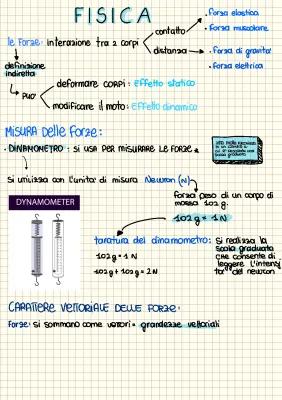 FISICA
le Forze: interazione tra 2 corpi
contatto
• forza elastica
• forza muscolare
distanza
• forza di gravita'
• forza elettrica
definizione
indiretta
puo'
deformare corpi: effetto statico
modificare il moto: Effetto dinamico
MISURA delle Forze:
• DINAMOMETRO: si usa per misurare le forze
si utilizza con l'unita' di misura Newton (N)
forza peso di un corpo di
massa 102 g.
102 g = 1 N
DYNAMOMETER
taratura del dinamometro: Si realizza la
scala graduata
che consente di
leggere l'intensi
ta' del newton
102 g = 1 N
102 g + 102 g = 2 N
CARATTERE VETTORIALE DELLE FORZE:
Forze: si sommano come vettori = grandezze vettoriali